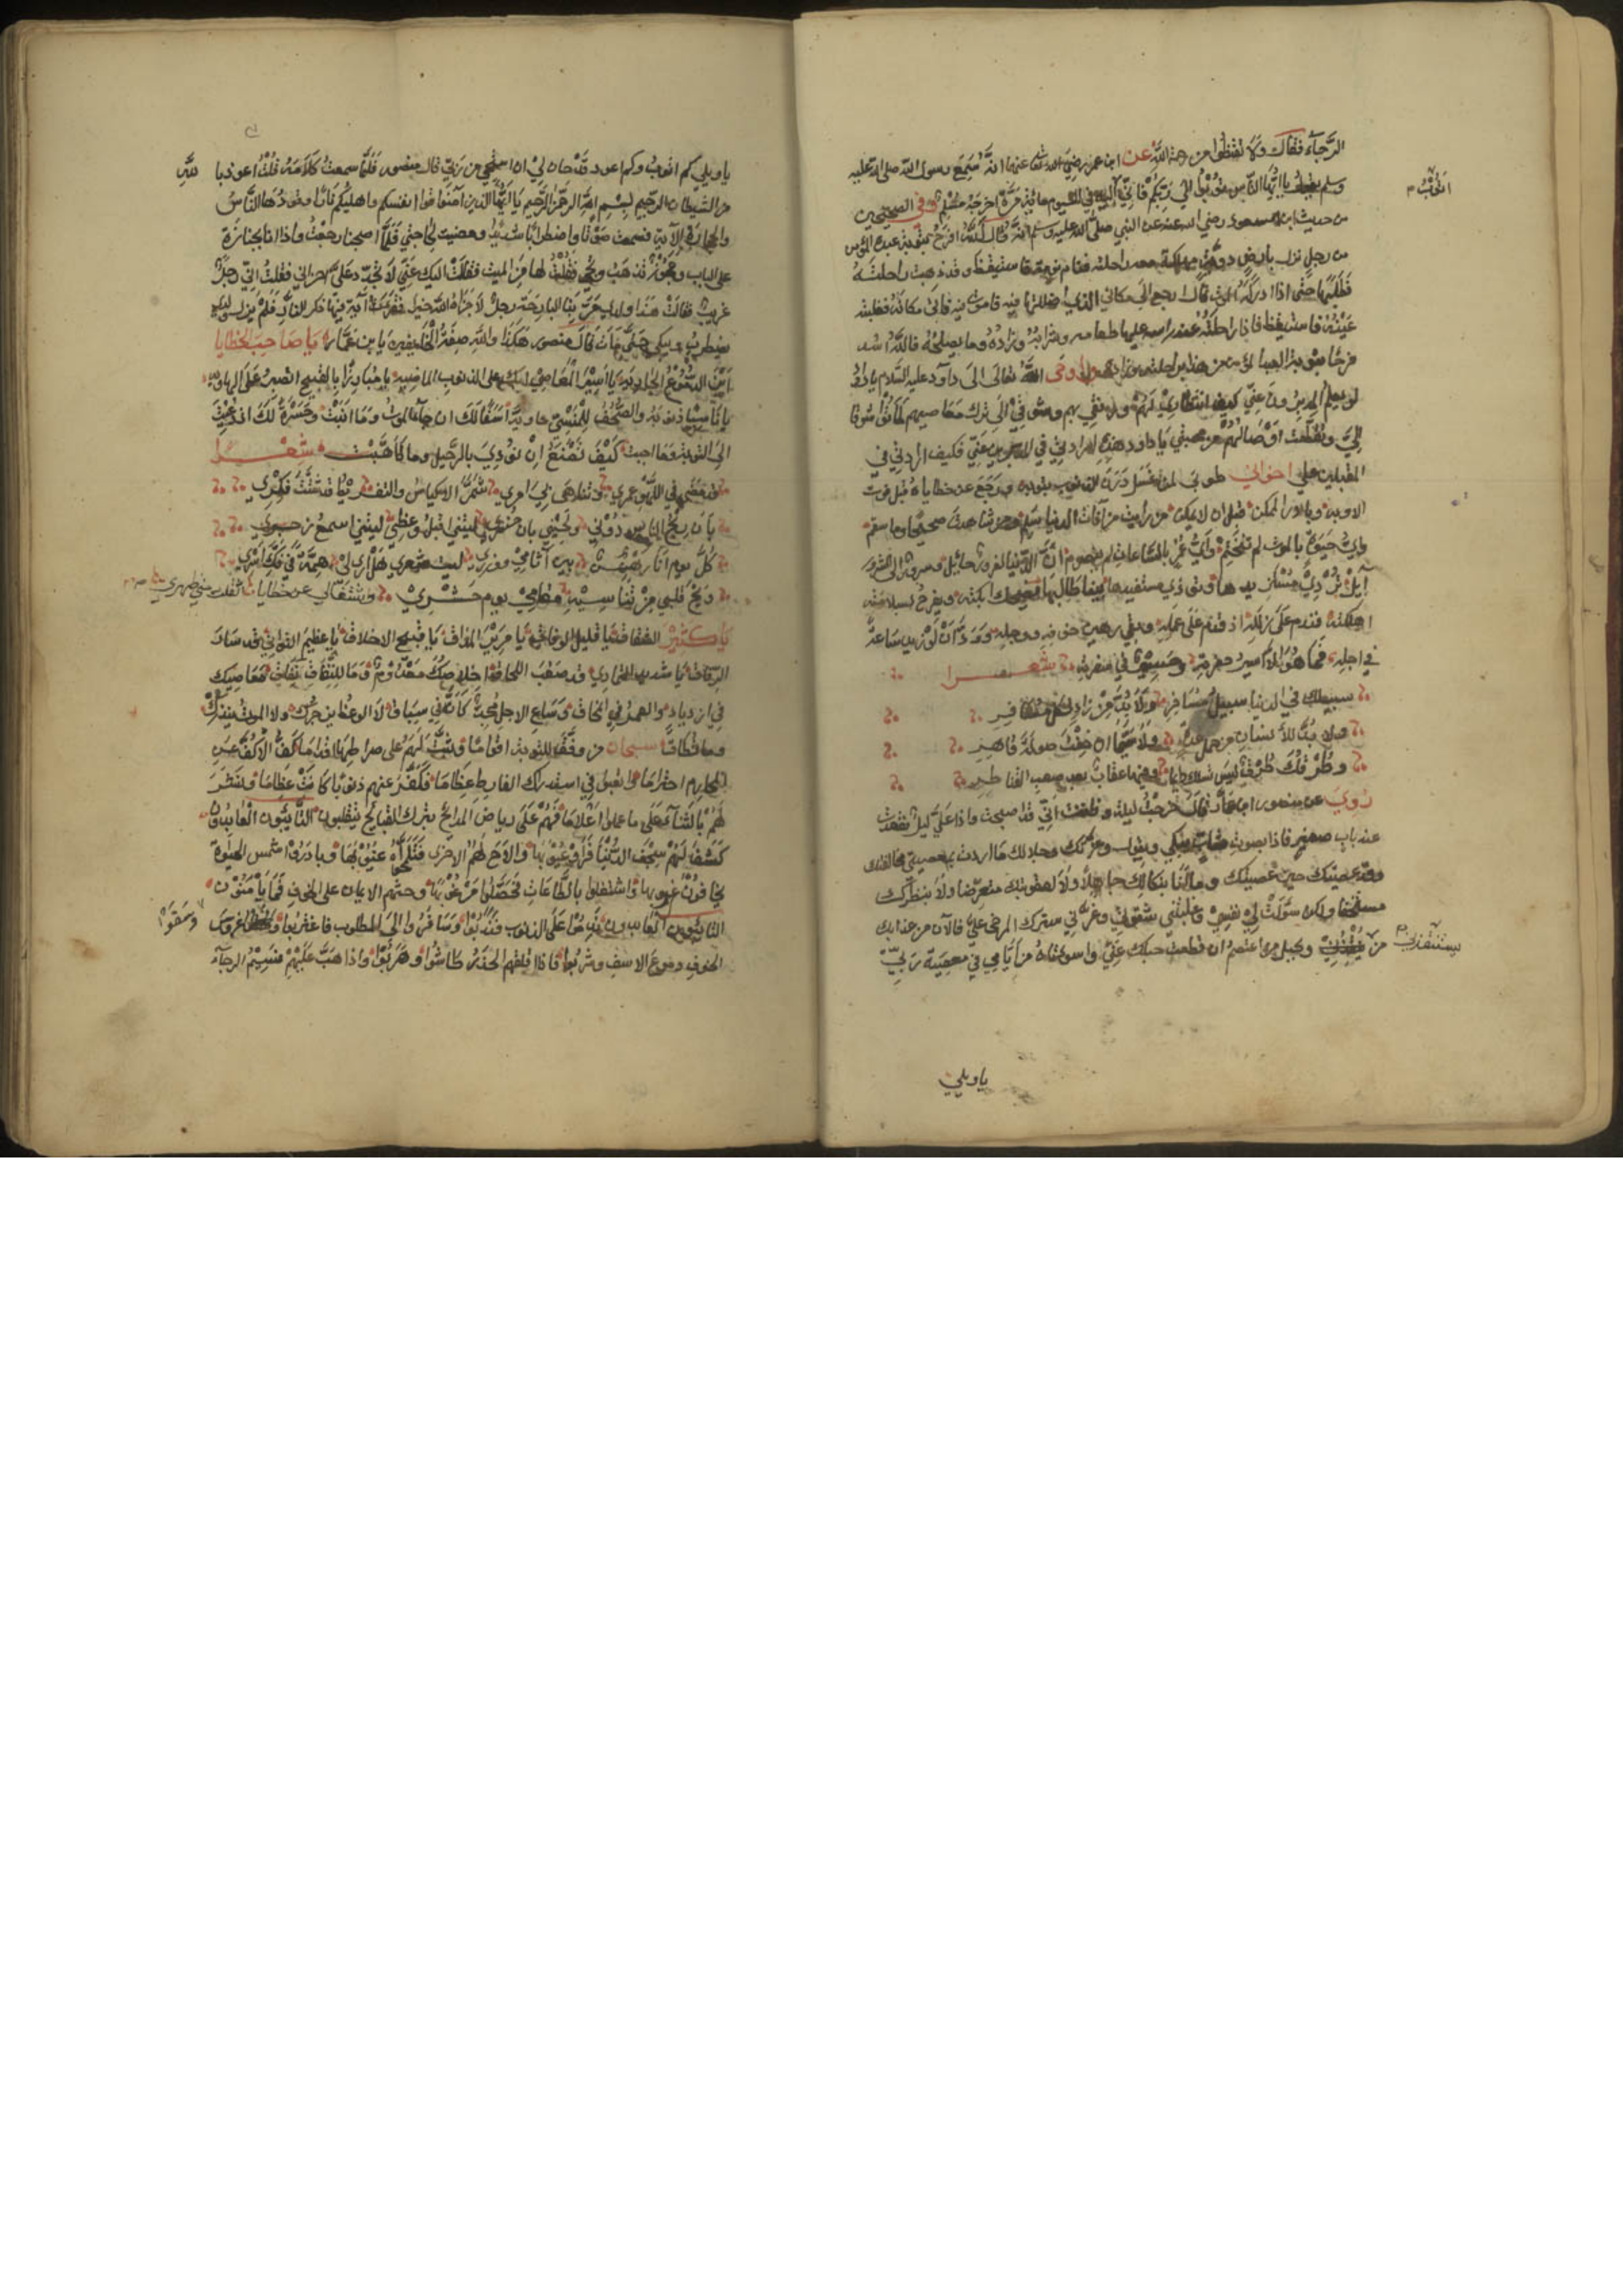 الرَّجآء فقال ولا تقنطوا من رحمة الله عن ابن عمر رضي الله تعالى عنهما انه سمع رسول الله صلى الله عليه
وسلم يقول يا ايها الناس توبوا الى ربكم فاني اتوب اليه في اليوم مائة مرة اخرجه مسلم وفي الصحيحين
من حديث ابن مسعود رضي الله عنه عن النبي صلى الله عليه وسلم انه قال لله افرح بتوبة عبده المؤمن
من رجل نزل بارض دوية مهلكة معه راحلته فنام نومة فاستيقظ وقد ذهبت راحلته
فطلبها حتى اذا ادركه الموت قال ارجع الى مكاني الذي اضللتها فيه فاموت فيه فاتى مكانه فغلبته
عينه فاستيقظ فاذا راحلته عند راسه عليها طعامه وشرابه وزاده وما يصلحه فالله اشد
فرحا بتوبة العبد المؤمن من هذا براحلته وزاده اوحى الله تعالى الى داود عليه السلام يا داود
لو يعلم المدبرون عني كيف انتظاري لهم ورفقي بهم وشوقي الى ترك معاصيهم لماتوا شوقا
الي وتقطعت اوصالهم من محبتي يا داود هذه ارادتي في المدبرين عني فكيف ارادتي في
المقبلين علي اخواني طوبى لمن غسل درن الذنوب بتوبة ورجع عن خطاياه قبل فوت
الاوبة وبادر الممكن قبل ان لا يمكن من رايت من آفات الدنيا سلم ومن شاهدت صحيحا وما سقم
واي حيوة بالموت لم تختم واي عمر بالساعات لم ينصرم ان الدنيا لغرور حائل وسرور الى الشرور
آيل تردي مستزيدها وتوذي مستفيدها بينما طالبها يضحك ابكته ويفرح بسلامته
اهلكته فندم على زلله اذ قدم على عمله وبقي رهين خوفه ووجله وود ان لو زيد ساعة
في اجله فما هو الا اسير حفرته وحسير في سفرته شعرا
سبيلك في الدنيا سبيل مسافر ولا بد من زاد لكل مسافر
ولا بد للانسان من حمل عدة ولا سيما ان خفت صولة قاهر
وطرقك طرق ليس تسلك دايما وفيها عقاب بعد صعب القناطر
روي عن منصور ابن عمار قال خرجت ليلة وظننت اني قد اصبحت واذا علي ليل فقعدت
عند باب صغير فاذا بصوت شاب يبكي ويقول وعزتك وجلالك ما اردت بمعصيتي مخالفتك
وقد عصيتك حين عصيتك وما انا بنكالك جاهلا ولا لعقوبتك متعرضا ولا بنظرك
مستخفا ولكن سولت لي نفسي وغلبتني شقوتي وغرني سترك المرخى علي فالآن من عذابك
من يستنقذني وبحبل من اعتصم ان قطعت حبلك عني واسوءتاه من ايامي في معصية ربي
يا ويلي
يا ويلي كم اتوب وكم اعود قد حان لي ان استحي من ربي قال منصور فلما سمعت كلامه قلت اعوذ بالله
من الشيطان الرجيم بسم الله الرحمن الرحيم يا ايها الذين آمنوا قوا انفسكم واهليكم نارا وقودها الناس
والحجارة الآية فسمعت صوتا واضطرابا شديدا ومضيت لحاجتي فلما اصبحنا رجعت واذا انا بجنازة
على الباب وعجوز تذهب وتجي فقلت لها من الميت فقالت اليك عني لا تجدد علي احزاني فقلت اني رجل
غريب فقالت هذا ولدي مر بنا البارحة رجل لا جزاه الله خيرا فقرا آية فيها ذكر النار فلم يزل ولدي
يضطرب ويبكي حتى مات قال منصور هكذا والله صفة الخايفين يا ابن عمار يا صاحب الخطايا
اين الدموع الجارية يا اسير المعاصي ابك على الذنوب الماضية يا مبارزا بالقبيح اتصبر على الهاوية
يا ناسيا ذنوبه والصحف للمنسي حاوية اسفا لك ان جآءك الموت وما انبت وحسرة لك اذ دعيت
الى التوبة فما اجبت كيف تصنع ان نودي بالرحيل وما تاهبت شعرا
قد مضى في اللهو عمري وتناهى في امري شمر الاكياس والتفريط قد شتت فكري
بان ربح الناس دوني ولحيني بان خسري ليتني اقبل وعظي ليتني اسمع زجري
كل يوم انا رهن بين آثامي ووزري ليت شعري هل ارى لي همة في فك اسري
ويح قلبي من تناسيه مقامي يوم حشري واشتغالي عن خطايا اثقلت مني ظهري
يا كثير الخلاف يا قليل الوفا يا مرير المذاق يا قبيح الاخلاق يا عظيم التواني قد سار
الرفاق يا شديد التمادي قد صعب اللحاق اخلاصك معدوم وما للنفاق نفاق ومعاصيك
في ازدياد والعمر في المحاق وساع الاجل مجد كانه في سباق لا الوعظ يزجرك ولا الموت ينذرك
وما تطاق سبحان من وفق للتوبة اقواما وثبت لهم على صراطها اقداما كف الاكف عن
المحارم احتراما فكفر عنهم ذنوبا كانت عظاما ونشر
لهم بالثنآء على ما عملوا اعلاما فهم على رياض المدايح بترك القبايح يتقلبون التايبون العابدون
كشف لهم سجف الدنيا فراوا عيوبها والاح لهم الاخرى فتلمحوا غيوبها وبادروا شمس الحيوة
يخافون غروبها واشتغلوا بالطاعات فحصلوا مرغوبها وحثهم الايمان على الخوف فما يامنون
التايبون العابدون ندموا على الذنوب فندبوا وسافروا الى المطلوب فاغتربوا وسقوا غروس
الخوف دموع الاسف وشربوا فاذا اقلقهم الحذر طاشوا وهربوا واذا هب عليهم نسيم الرجآء